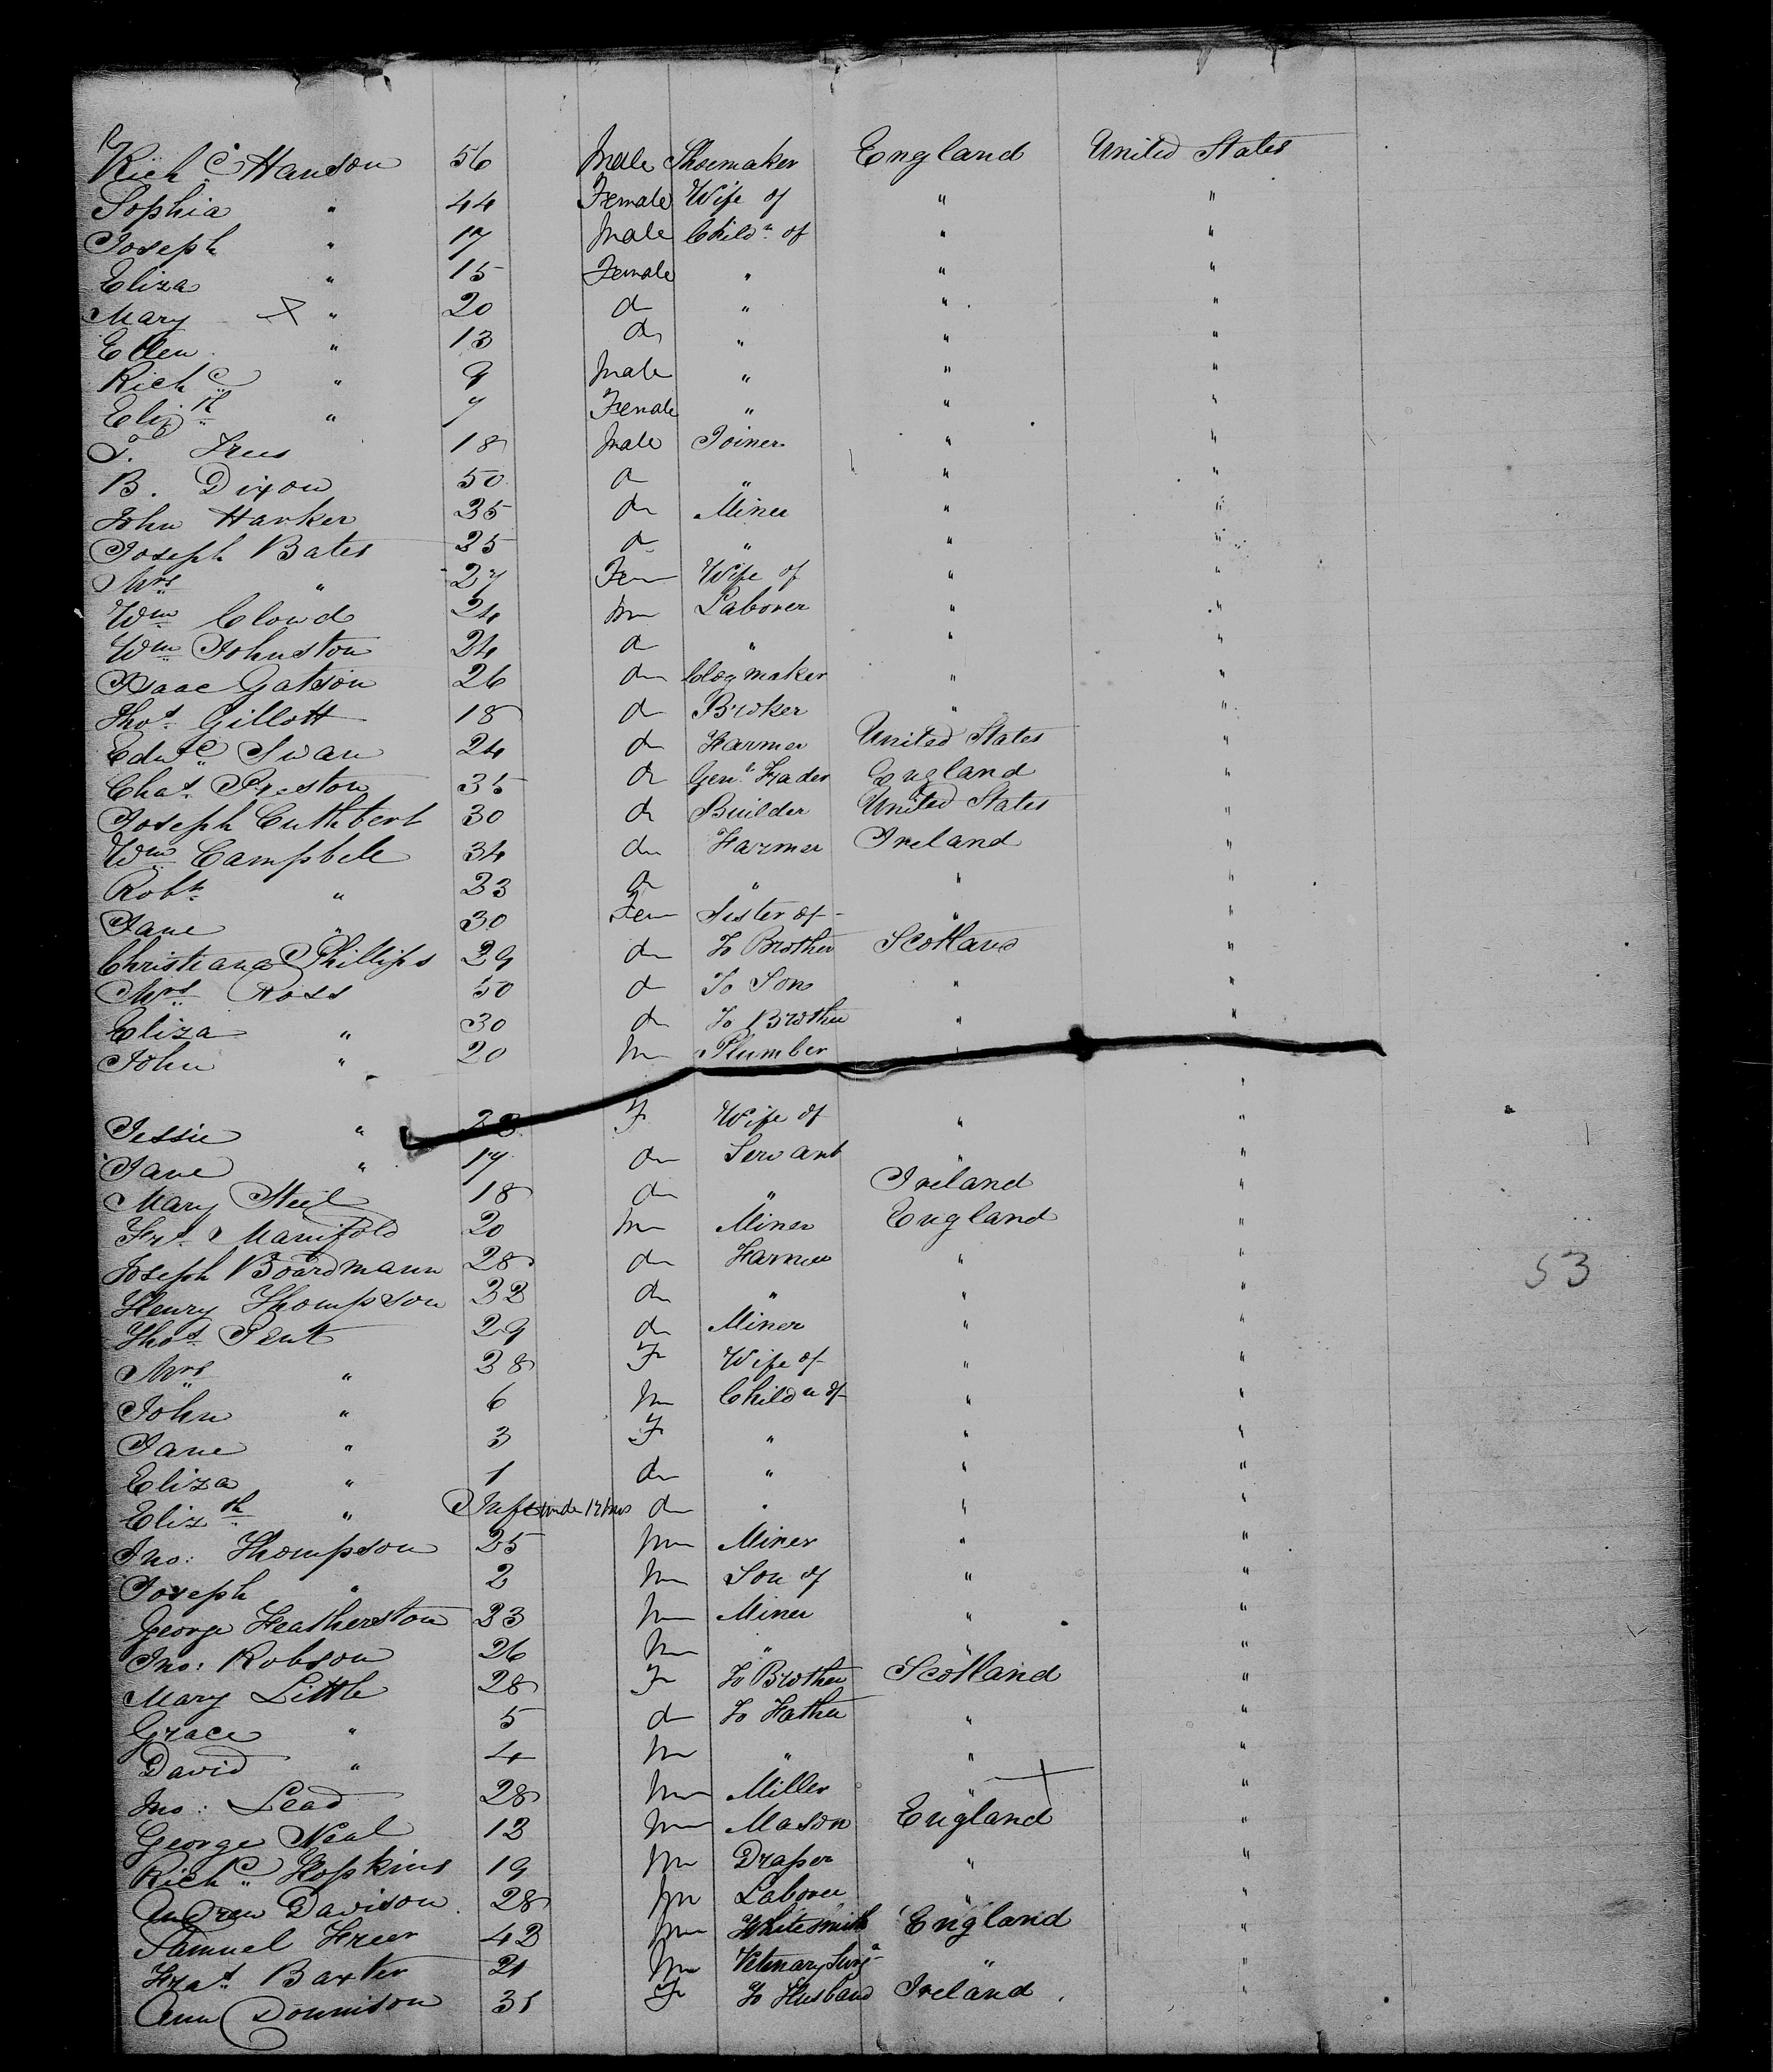 Richd Hanson 56 Male Shoemaker England United States
Sophia " 44 Female Wife of " "
Joseph " 17 Male Childn of " "
Eliza " 15 Female " " "
Mary X " 20 do " " "
Ellen " 13 do " " "
Richd " 9 Male " " "
Elizth " 7 Female " " "
T. Frees 18 Male Joiner " "
B. Dixon 50 do " " "
John Harker 35 do Miner " "
Joseph Bates 25 do " " "
Mrs " 27 Fem Wife of " "
Wm Clowd 24 m Laborer " "
Wm Johnston 24 do " " "
Isaac Gatson 26 do Clog maker " "
Thos Gillott 18 do Broker " "
Edwd Swan 24 do Farmer United States "
Chas Preston 35 do Genl Trader England "
Joseph Cuthbert 30 do Builder United States "
Wm Campbell 34 do Farmer Ireland "
Robt " 23 do " " "
Jane " 30 Fem Sister of " "
Christiana Phillips 29 do To Brother Scotland "
Mrs Ross 50 do To Son " "
Eliza " 30 do To Brother " "
John " 20 m Plumber " "
Jessie " 23 F Wife of " "
Jane " 17 do Servant " "
Mary Steel 18 do " Ireland "
Frs Manifold 20 m Miner England "
Joseph Boardmann 28 do Farmer " "
Henry Thompson 32 do " " "
Thos Pent 29 do Miner " "
53
Mrs " 38 F Wife of " "
John " 6 m Childn of " "
Jane " 3 F " " "
Eliza " 1 do " " "
Elizth " Inft under 12 mos do " " "
Jno: Thompson 25 m Miner " "
Joseph " 2 m Son of " "
George Featherston 23 m Miner " "
Jno: Robson 26 m " " "
Mary Little 28 F To Brother Scotland "
Grace " 5 do To Father " "
David " 4 m " " "
Jno: Lead 28 m Miller " "
George Neal 13 m Mason England "
Richd Hopkins 19 m Draper " "
Andrew Davison 28 m Laborer " "
Samuel Freer 42 m Whitesmith England "
Fras Baxter 21 m Vetinary Surgn " "
Ann Dounison 31 F To Husband Ireland "